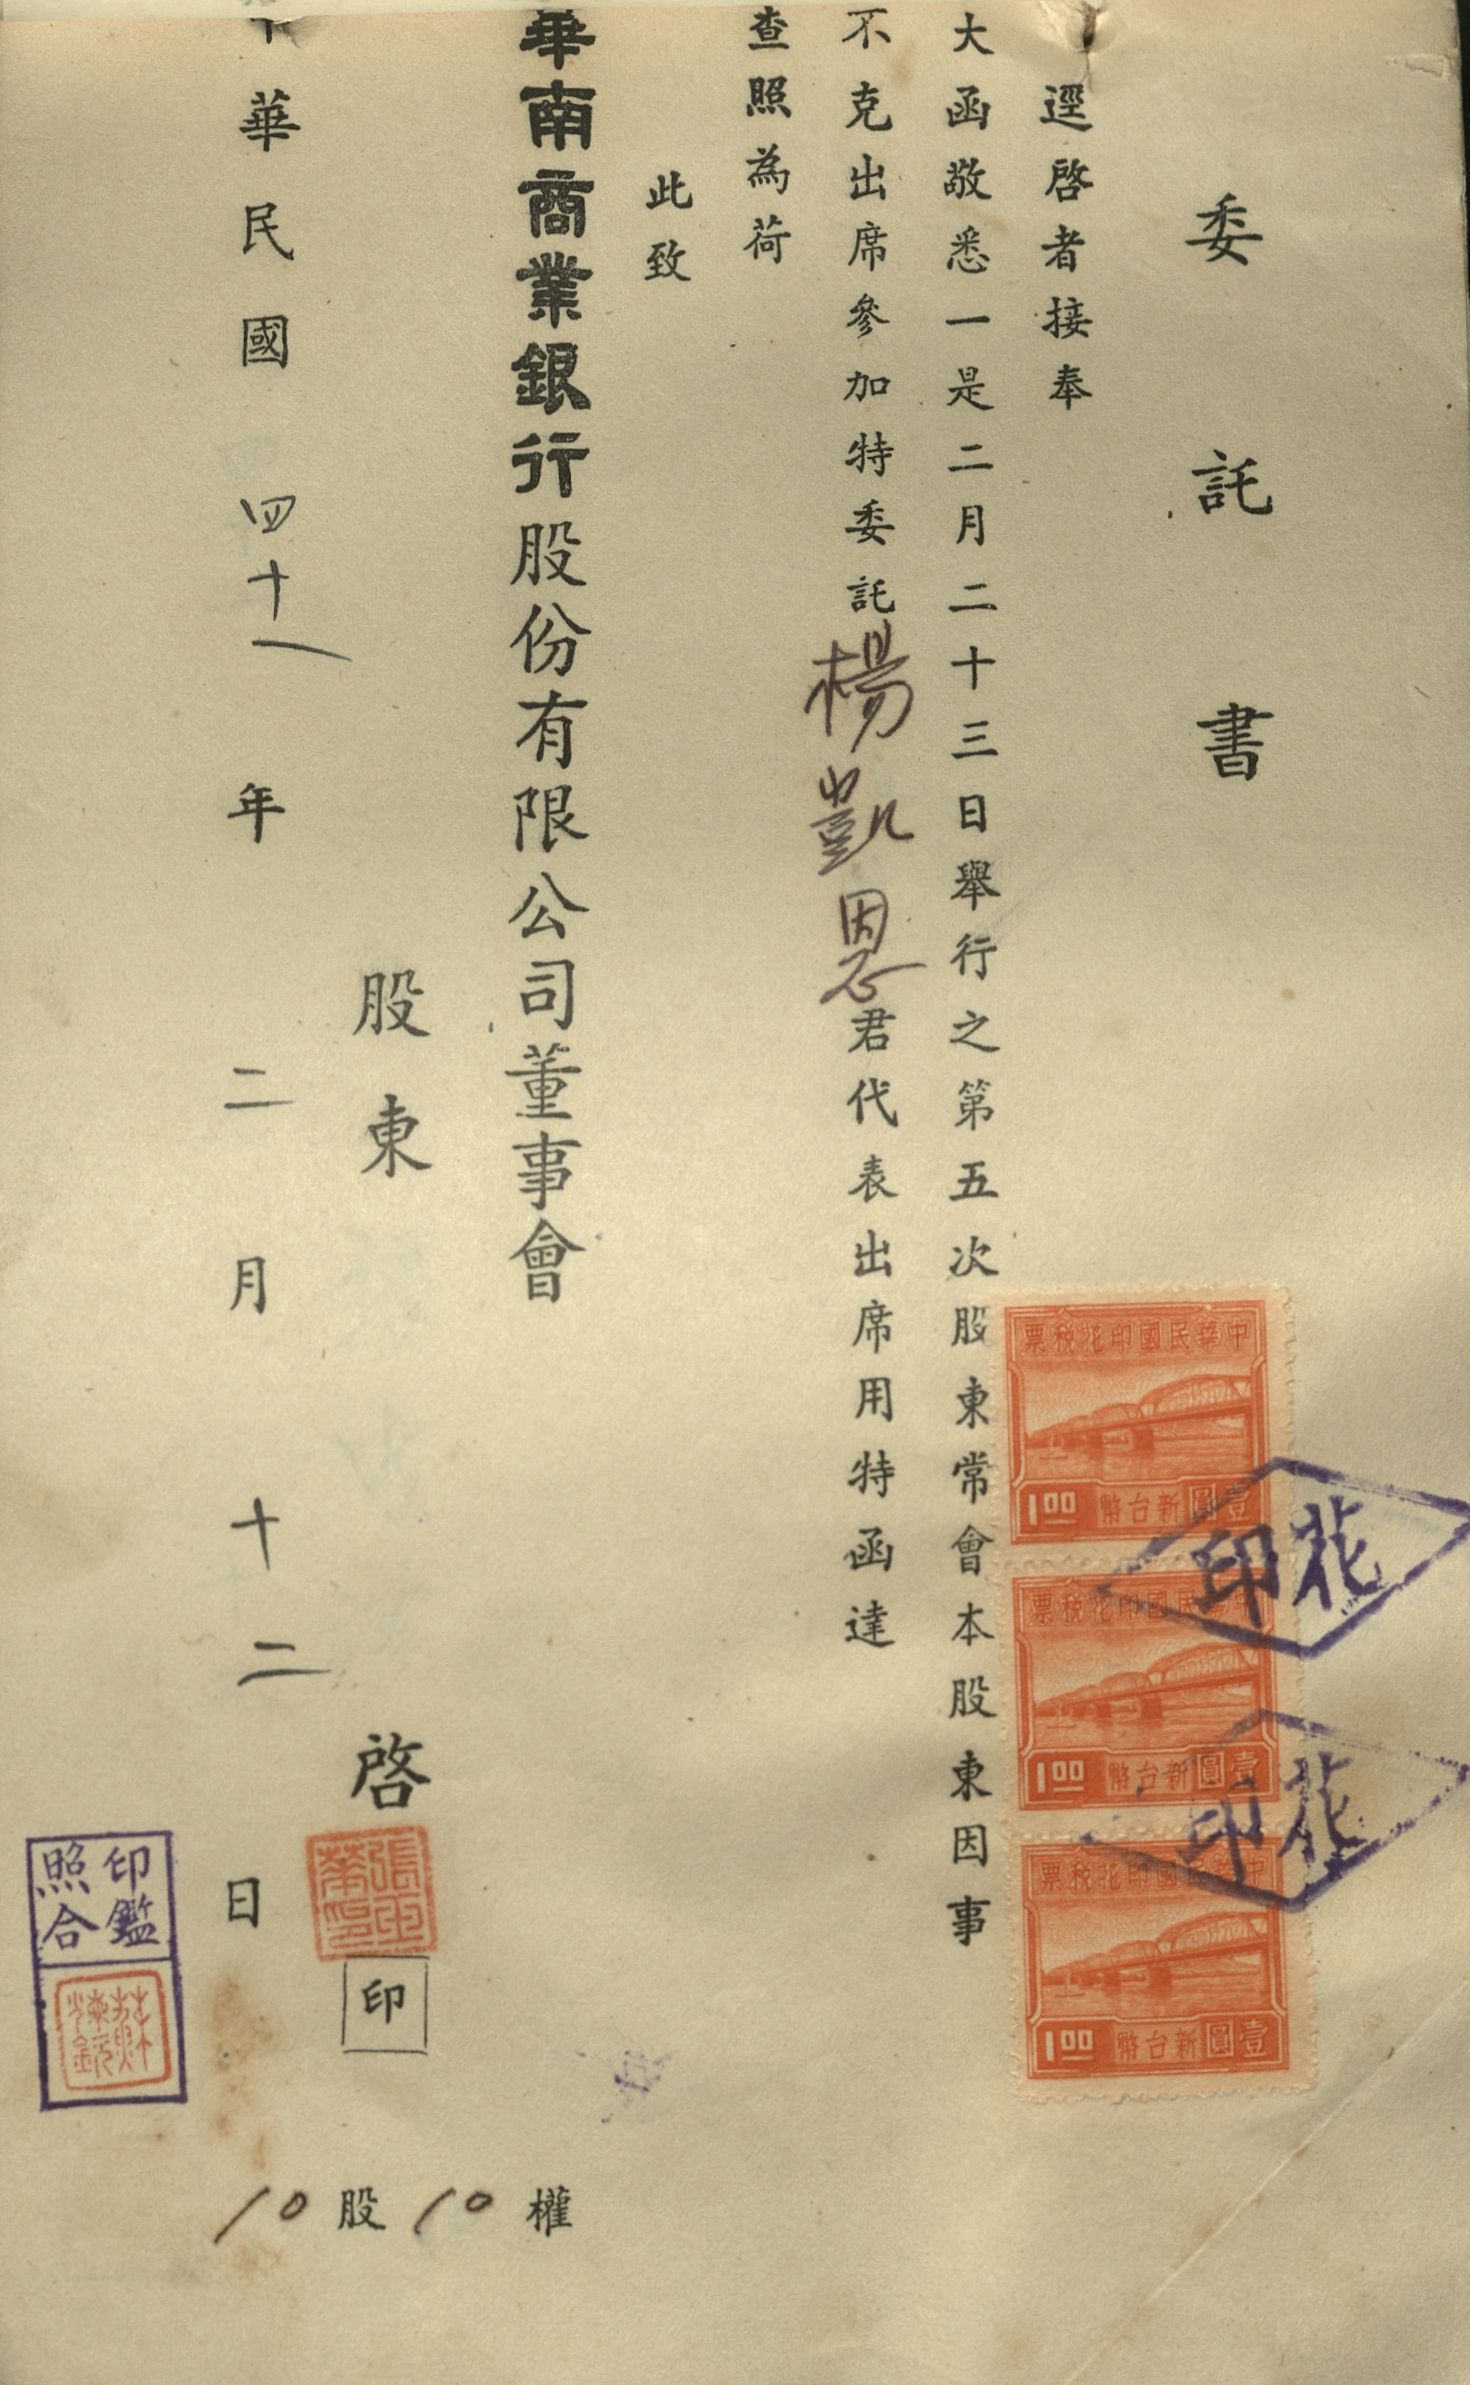 委託書
逕啓者接奉
大函敬悉一是二月二十三日舉行之第五次股東常會本股東因事
不克出席參加特委託楊凱恩君代表出席用特函達
查照為荷
此致
華南商業銀行股份有限公司董事會
股東 啓 印
中華民國 四十一 年 二 月 十二 日
10 股 10 權
中華民國印花稅票
1.00 壹圓新台幣
花印
中華民國印花稅票
1.00 壹圓新台幣
花印
中華民國印花稅票
1.00 壹圓新台幣
印鑑
照合